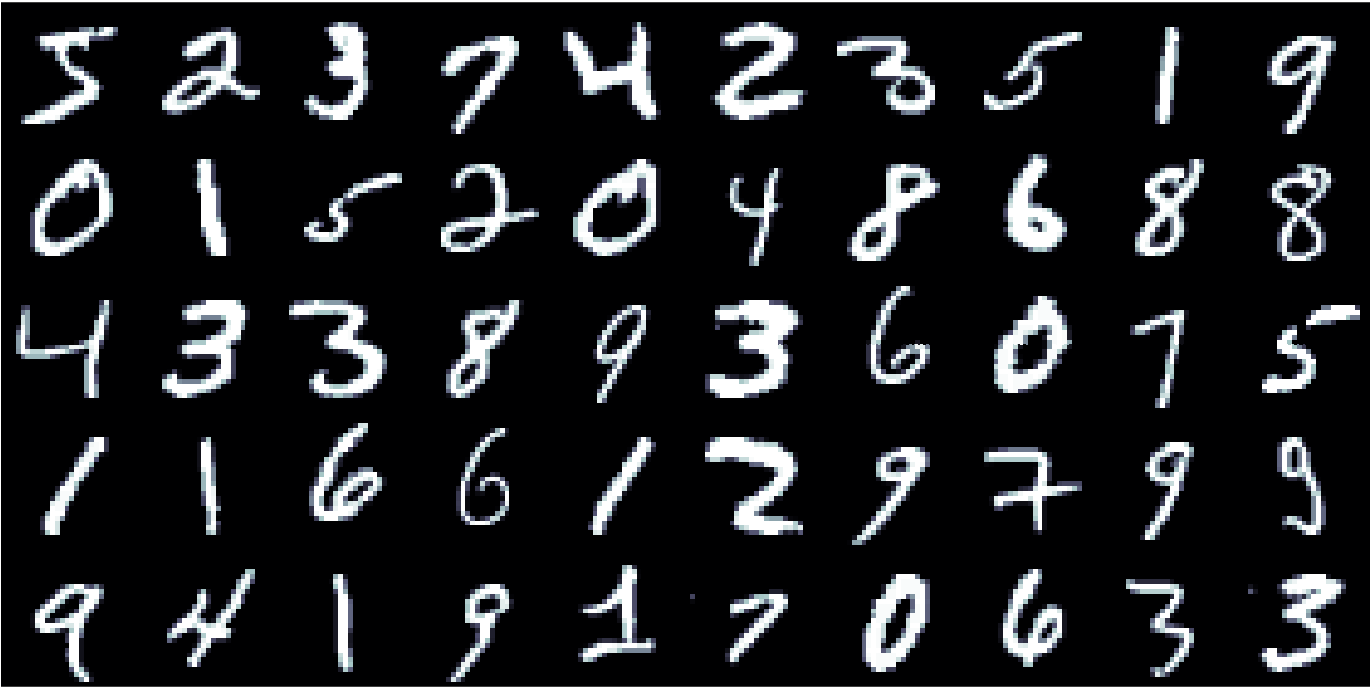 5 2 3 7 4 2 3 5 1 9
0 1 5 2 0 4 8 6 8 8
4 3 3 8 9 3 6 0 7 5
1 1 6 6 1 2 9 7 9 9
9 4 1 9 1 7 0 6 3 3